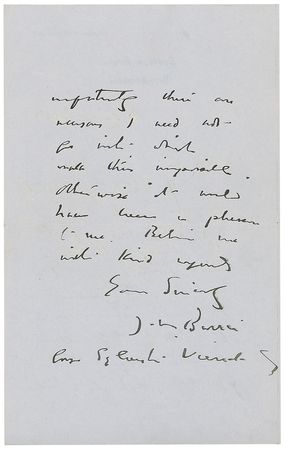 there are
reasons I need not
go into which
make this impossible.
Otherwise it would
have been a pleasure
to me. Believe me
with kind regards
Yours Sincerely
J. M. Barrie